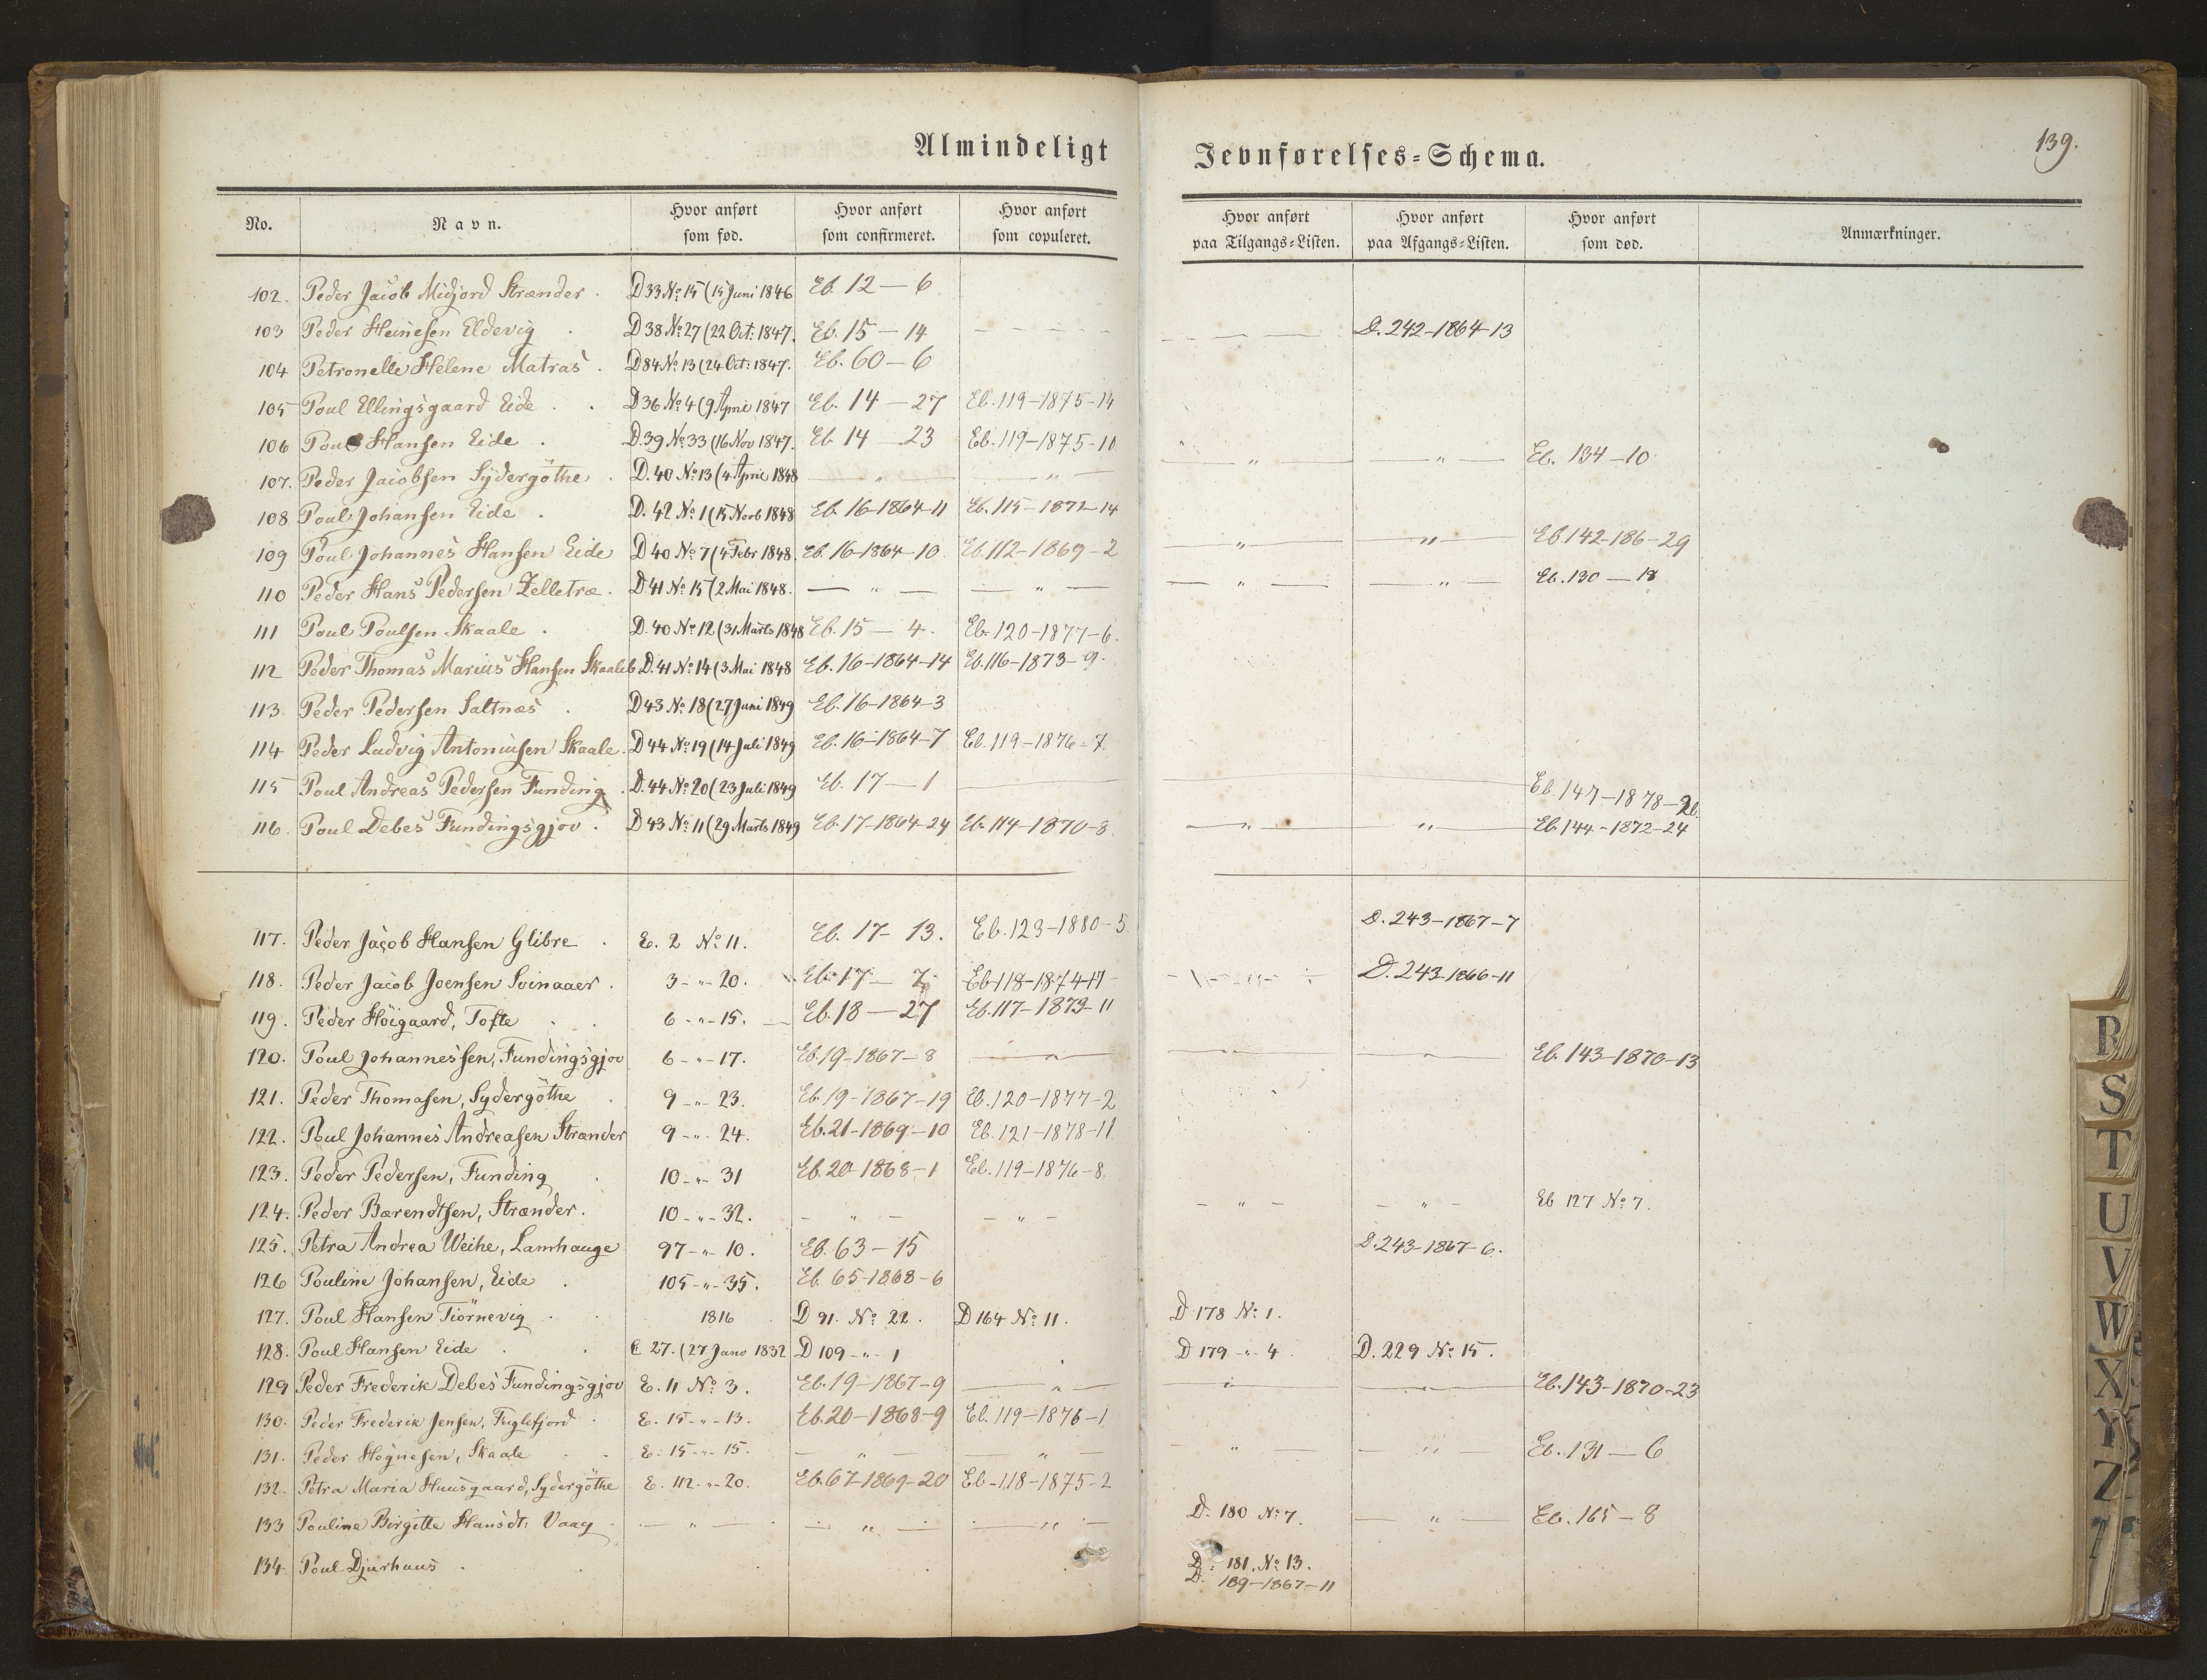 Almindeligt Jevnførelses=Schema.
139.
No. Navn. Hvor anført som fød. Hvor anført som confirmeret. Hvor anført som copuleret. Hvor anført paa Tilgangs=Listen. Hvor anført paa Afgangs=Listen. Hvor anført som død. Anmærkninger.
102. Peder Jacob Midjord Strænder. D33 No 15 (15 Juni 1846 Eb. 12 — 6
103 Peder Heinesen Eldevig . D38 No 27 (22 Oct: 1847. Eb. 15 — 14 D. 242-1864-13
104 Petronelle Helene Matras . D84 No 13 (24 Oct: 1847. Eb. 60 — 6
105 Poul Ellingsgaard Eide . . D36 No 4 (9 April 1847 Eb. 14 — 27 Eb. 119-1875-14
106 Poul Hansen Eide . D.39 No 33 (16 Nov 1847. Eb 14 — 23 Eb. 119-1875-10
107. Peder Jacobsen Sydergöthe . D. 40 No 13 (4 April 1848 — " — — " — — " — — " — Eb. 134 — 10
108 Poul Johansen Eide . D. 42 No 1 (15 Novb 1848 Eb. 16-1864-11 Eb. 115-1871-14
109 Poul Johannes Hansen Eide D 40 No 7 (4 Febr 1848. Eb. 16-1864-10. Eb. 112-1869-2 — " — — " — Eb 142-186-29
110 Peder Hans Pedersen Zelletræ. D.41 No 15 (2 Mai 1848. — " — — " — — " — — " — Eb. 130 — 18
111 Poul Poulsen Skaale . D. 40 No 12 (31 Marts 1848 Eb. 15 — 4. Eb. 120-1877-6.
112 Peder Thomas Marius Hansen Skaaleb D. 41 No 14 (3 Mai 1848 Eb. 16-1864-14 Eb. 116-1873-9.
113 Peder Pedersen Saltnæs . D43 No 18 (27 Juni 1849 Eb. 16-1864-3
114 Peder Ludvig Antoniusen Skaale. D 44 No 19 (14 Juli 1849 Eb. 16-1864-7 Eb. 119-1876-7.
115 Poul Andreas Pedersen Funding . D. 44 No 20 (23 Juli 1849 Eb. 17 — 1 Eb 147-1878-26.
116. Poul Debes Fundingsgjov . D 43 No 11 (29 Marts 1849 Eb. 17-1864-24 Eb. 114-1870-8 — " — — " — Eb. 144-1872-24
117. Peder Jacob Hansen Glibre . E. 2 No 11. Eb. 17- 13. Eb. 123-1880-5. D. 243-1867-7
118. Peder Jacob Joensen Svinaaer . 3 - " - 20. Eb. 17 — 7. Eb 118-1874-17 D. 243-1866-11
119. Peder Höigaard, Tofte . . 6 - " - 15. Eb. 18 — 27 Eb. 117-1873-11
120. Poul Johannessen, Fundingsgjov 6 - " - 17. Eb. 19-1867-8 — " — Eb. 143-1870-13
121. Peder Thomasen, Sydergöthe . 9 - " - 23. Eb. 19-1867-19 Eb. 120-1877-2
122. Poul Johannes Andreasen Strænder 9 - " - 24. Eb. 21-1869-10 Eb. 121-1878-11
123. Peder Pedersen, Funding . 10 - " - 31 Eb. 20-1868-1 Eb. 119-1876-8.
124. Peder Barendtsen, Strænder. 10 - " - 32. - " - - " - - " - - " - Eb 127 No 7.
125. Petra Andrea Weihe, Lamhauge 97 - " - 10. Eb. 63 - 15 D. 243-1867-6.
126 Pouline Johansen, Eide . 105 - " - 35. Eb. 65-1868-6
127. Poul Hansen Tiörnevig . 1816 D 91. No 22. D 164 No 11. D 178 No 1.
128. Poul Hansen Eide . . E 27. (27 Janv 1832 D 109 - " - 1 D 179 - " 4 D. 229 No 15.
129 Peder Frederik Debes Fundingsgjov E. 11 No 3. Eb. 19-1867-9 — " — Eb. 143-1870-23
130. Peder Frederik Jensen, Fuglefjord . E. 15 - " - 13. Eb. 20-1868-9 Eb. 119-1876-1
131. Peder Högnesen, Skaale . . E. 15 - " - 15. — " — — " — — " — — " — Eb. 131 — 6
132. Petra Maria Huusgaard, Sydergöthe E. 112. " - 20. Eb. 67-1869-20 Eb - 118-1875-2
133 Pouline Birgitte Hansdt: Vaag . — " — — " — — " — D. 180 No 7. — " — Eb. 165 — 8
134. Poul Djurhuus . D. 181. No 13.
D. 189-1867-11
R
S
T
U
V
W
X
Y
Z